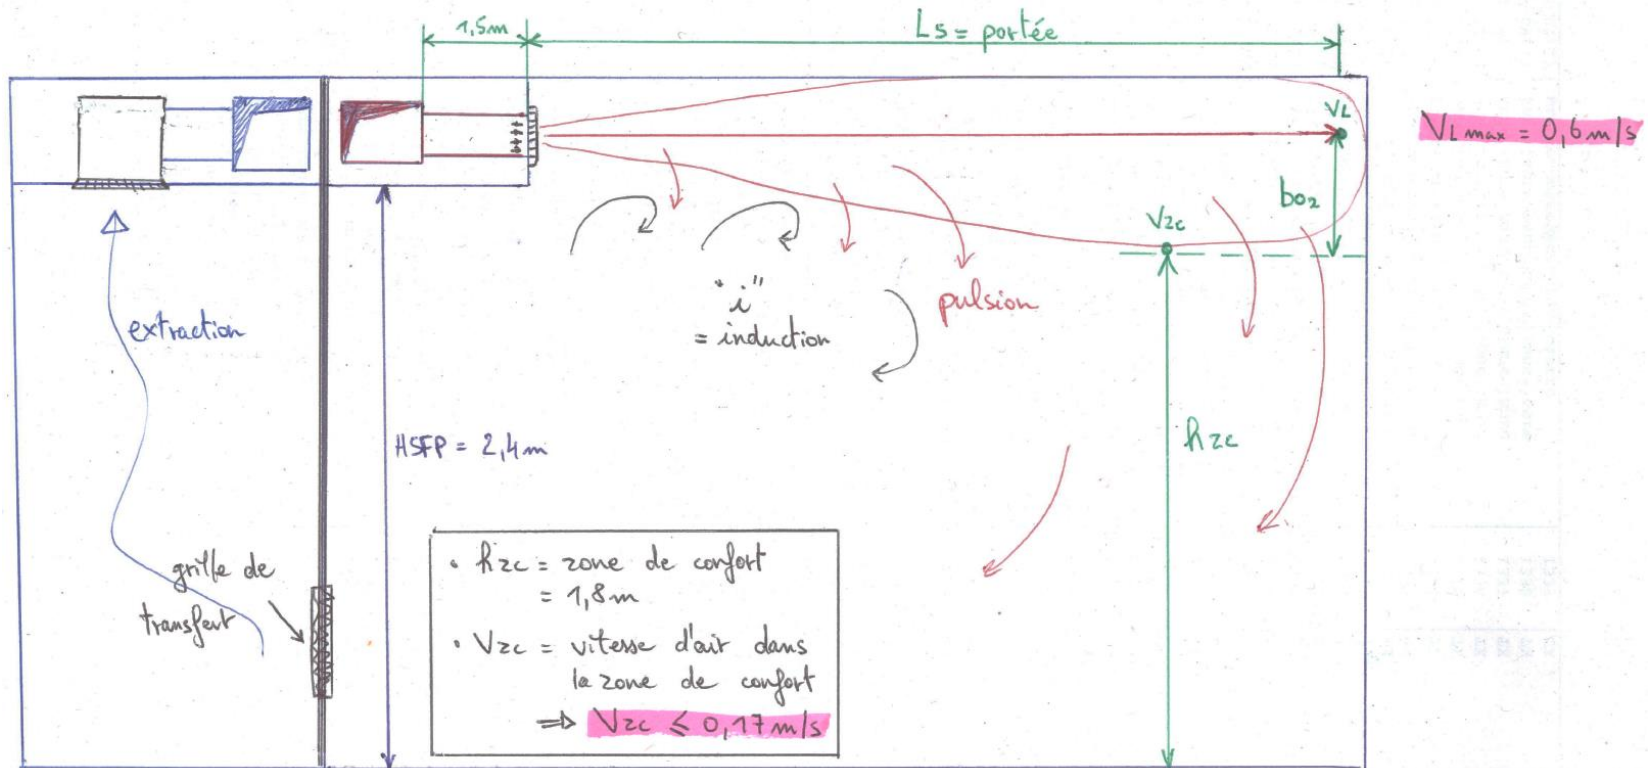 1,5m
L5 = portée
VL
VL max = 0,6 m/s
bo2
Vzc
extraction
"i"
= induction
pulsion
HSFP = 2,4 m
hzc
grille de
transfert
• hzc = zone de confort
= 1,8m
• Vzc = vitesse d'air dans
la zone de confort
⇒ Vzc ≤ 0,17 m/s